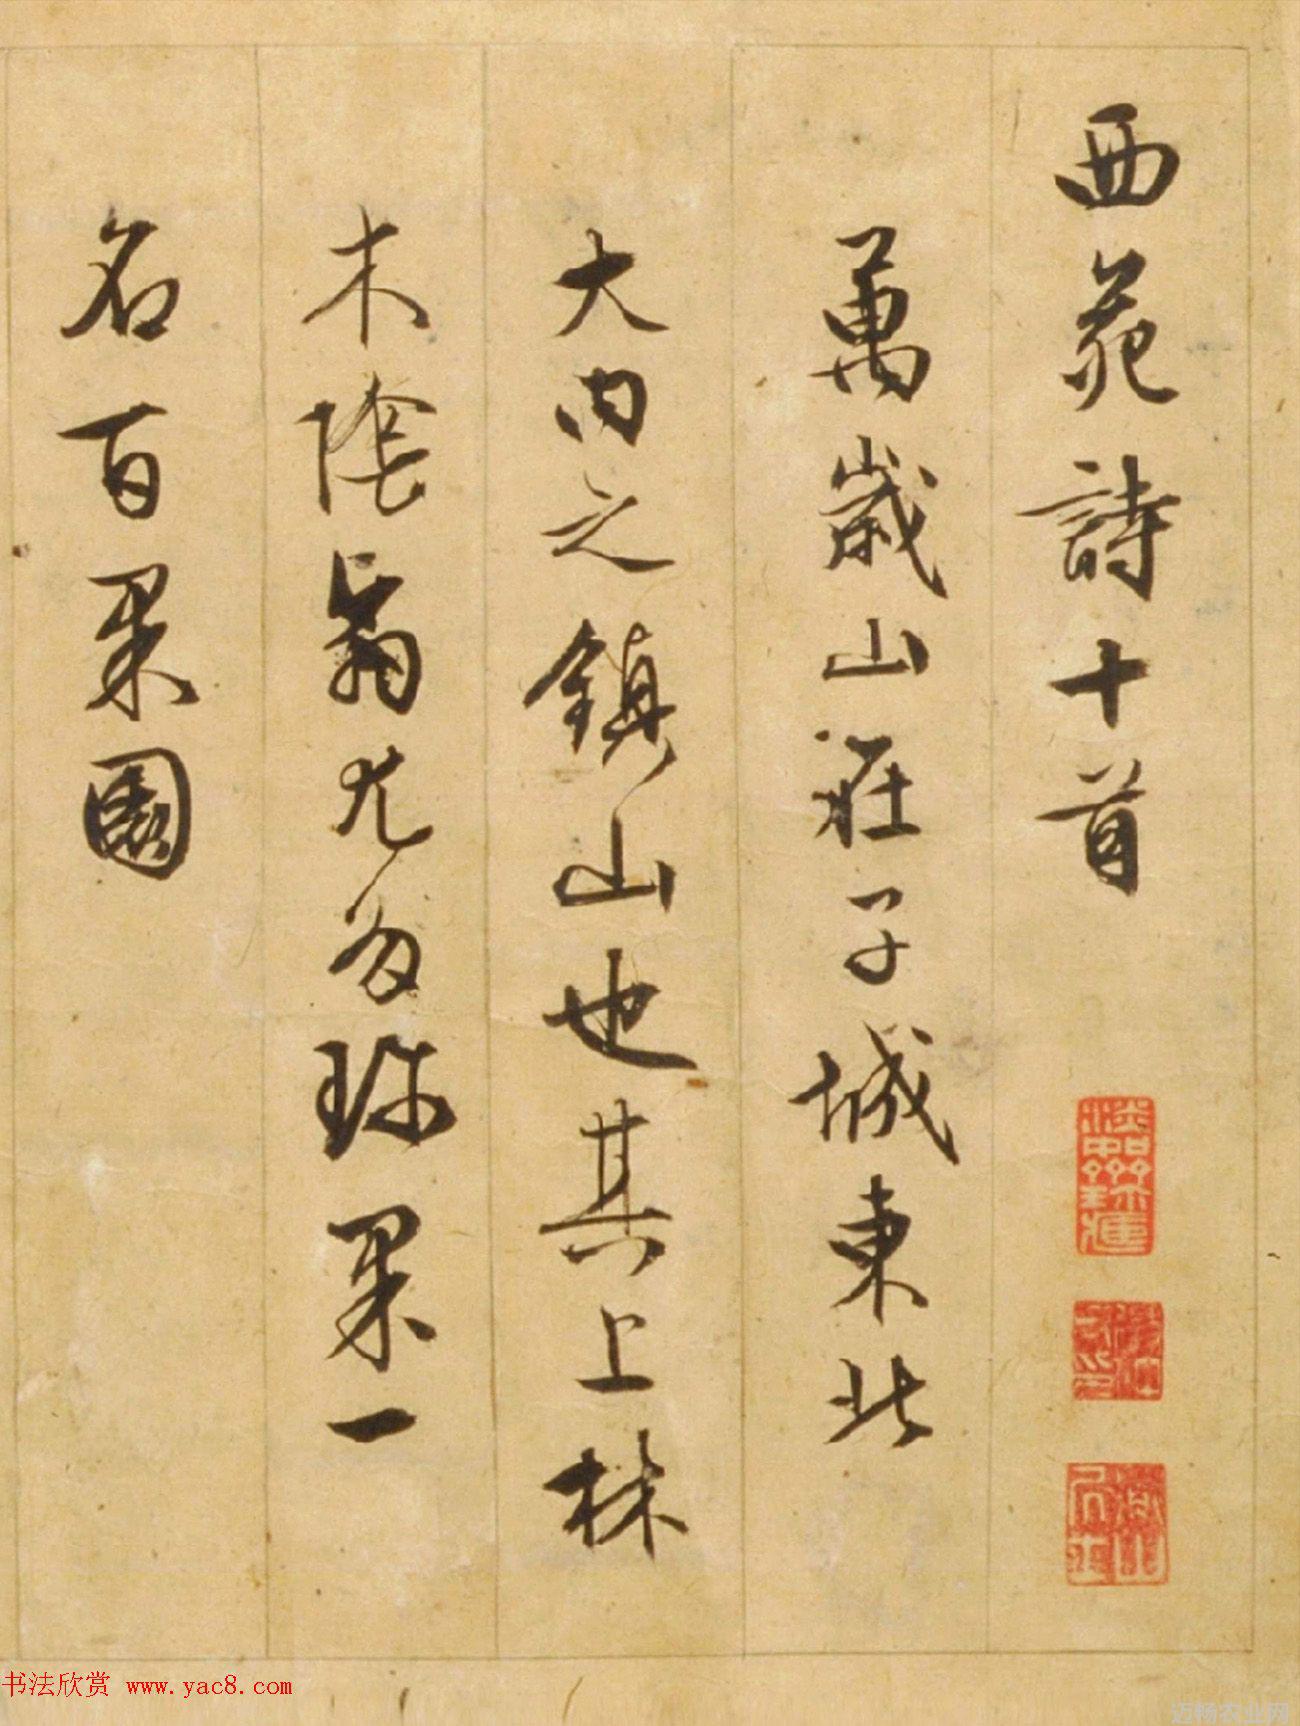 西苑詩十首
萬歲山在子城東北
大内之鎮山也其上林
木陰翳尤多珎果一
名百果園
书法欣赏 www.yac8.com
迈畅农业网